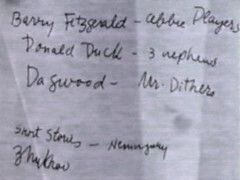 Barry Fitzgerald - Abbie Players
Donald Duck - 3 nephews
Dagwood - Mr. Dithers
Short Stories - Hemingway
Zhukhov